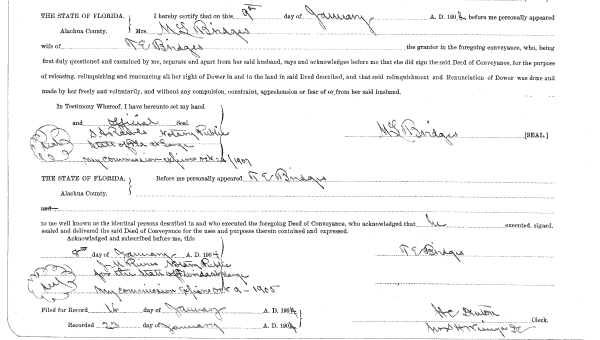 THE STATE OF FLORIDA. I hereby certify that on this 9th day of January A. D. 190 before me personally appeared
Alachua County. Mrs M L Bridges
wife of R E Bridges the grantor in the foregoing conveyance, who, being
first duly questioned and examined by me, separate and apart from her said husband, says and acknowledges before me that she did sign the said Deed of Conveyance, for the purpose
of releasing, relinquishing and renouncing all her right of Dower in and to the land in said Deed described, and that said relinquishment and Renunciation of Dower was done and
made by her freely and voluntarily, and without any compulsion, constraint, apprehension or fear of or from her said husband.
In Testimony Whereof, I have hereunto set my hand
and official Seal
Notary Public M L Bridges [SEAL]
State of Fla at Large
My commission expires Oct 1907
THE STATE OF FLORIDA. Before me personally appeared R E Bridges
Alachua County.
and
to me well known as the identical persons described in and who executed the foregoing Deed of Conveyance, who acknowledged that he executed, signed,
sealed and delivered the said Deed of Conveyance for the uses and purposes therein contained and expressed.
Acknowledged and subscribed before me, this
8th day of January A. D. 1904 R E Bridges
Notary Public
for the State of Florida at Large
My commission expires Oct 9 - 1905
Filed for Record 16 day of January A. D. 1904
Clerk.
Recorded 23 day of January A. D. 1904